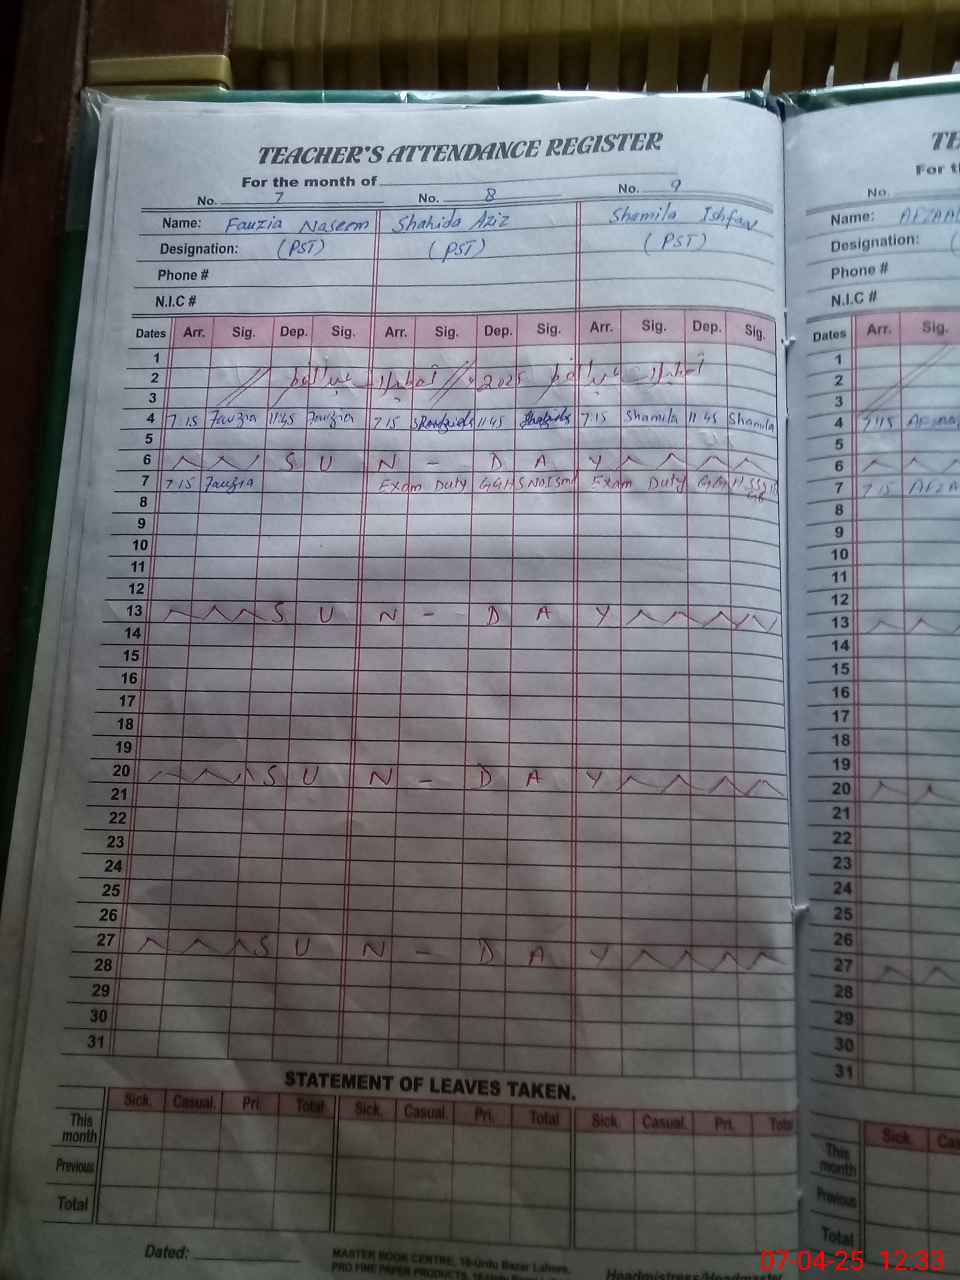 TEACHER'S ATTENDANCE REGISTER
For the month of
No. 7 No. 8 No. 9
Name: Fauzia Naseem Shahida Aziz Shamila Ishfaq
Designation: (PST) (PST) (PST)
Phone #
N.I.C #
Dates Arr. Sig. Dep. Sig. Arr. Sig. Dep. Sig. Arr. Sig. Dep. Sig.
1
2 2025
3
4 7 15 Fauzia 11:45 Fauzia 7 15 11:45 7:15 Shamila 11 45 Shamila
5
6 S U N - D A Y
7 7 15 Fauzia Exam Duty GGHS No1 Exam Duty
8
9
10
11
12
13 S U N - D A Y
14
15
16
17
18
19
20 S U N - D A Y
21
22
23
24
25
26
27 S U N - D A Y
28
29
30
31
STATEMENT OF LEAVES TAKEN.
Sick. Casual. Pri. Total Sick. Casual. Pri. Total Sick. Casual. Pri. Total
This month
Previous
Total
Dated:
MASTER BOOK CENTRE, 18-Urdu Bazar Lahore.
PRO FINE PAPER PRODUCTS,
Headmistress/Headmaster
No.
Name:
Designation: (
Phone #
N.I.C #
Dates Arr. Sig.
1
2
3
4 7:15
5
6
7 7 15 AFZA
8
9
10
11
12
13
14
15
16
17
18
19
20
21
22
23
24
25
26
27
28
29
30
31
Sick.
This month
Previous
Total
07-04-25 12:33